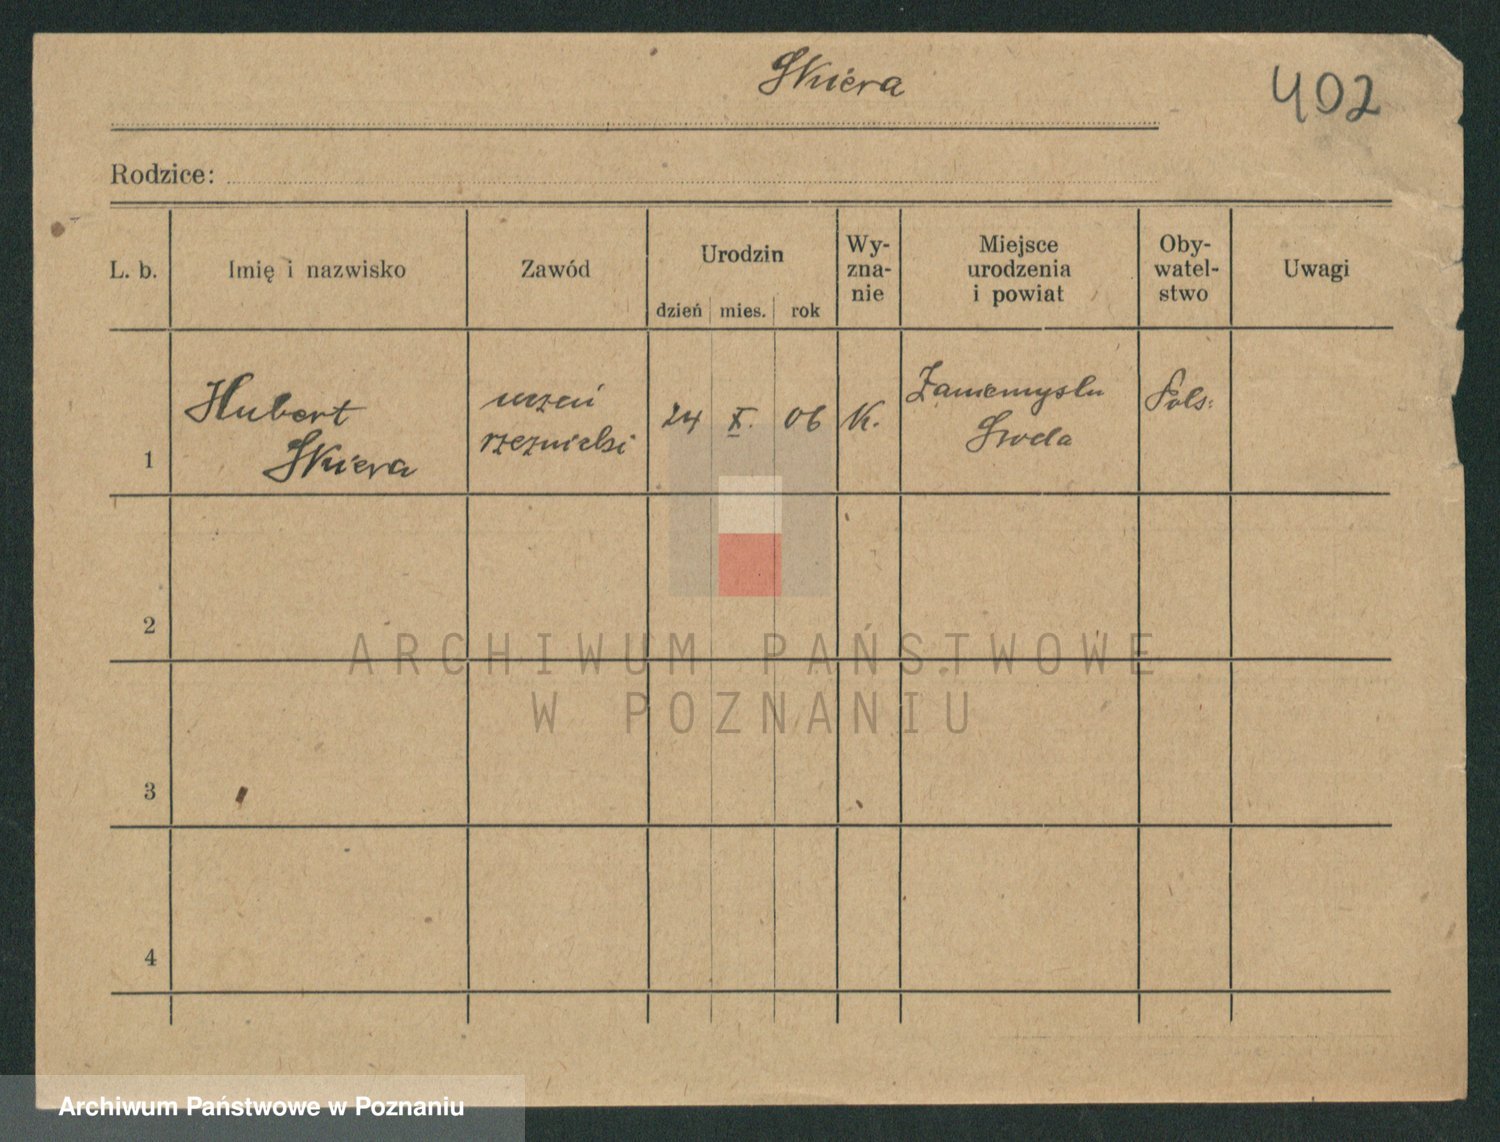 Skiera
402
Rodzice:
L. b.
Imię i nazwisko
Zawód
Urodzin
dzień mies. rok
Wy-
zna-
nie
Miejsce
urodzenia
i powiat
Oby-
watel-
stwo
Uwagi
1
Hubert
Skiera
uczeń
rzeźnicki
24 X. 06
K.
Zaniemyślu
Środa
Pols:
2
3
4
ARCHIWUM PAŃSTWOWE
W POZNANIU
Archiwum Państwowe w Poznaniu